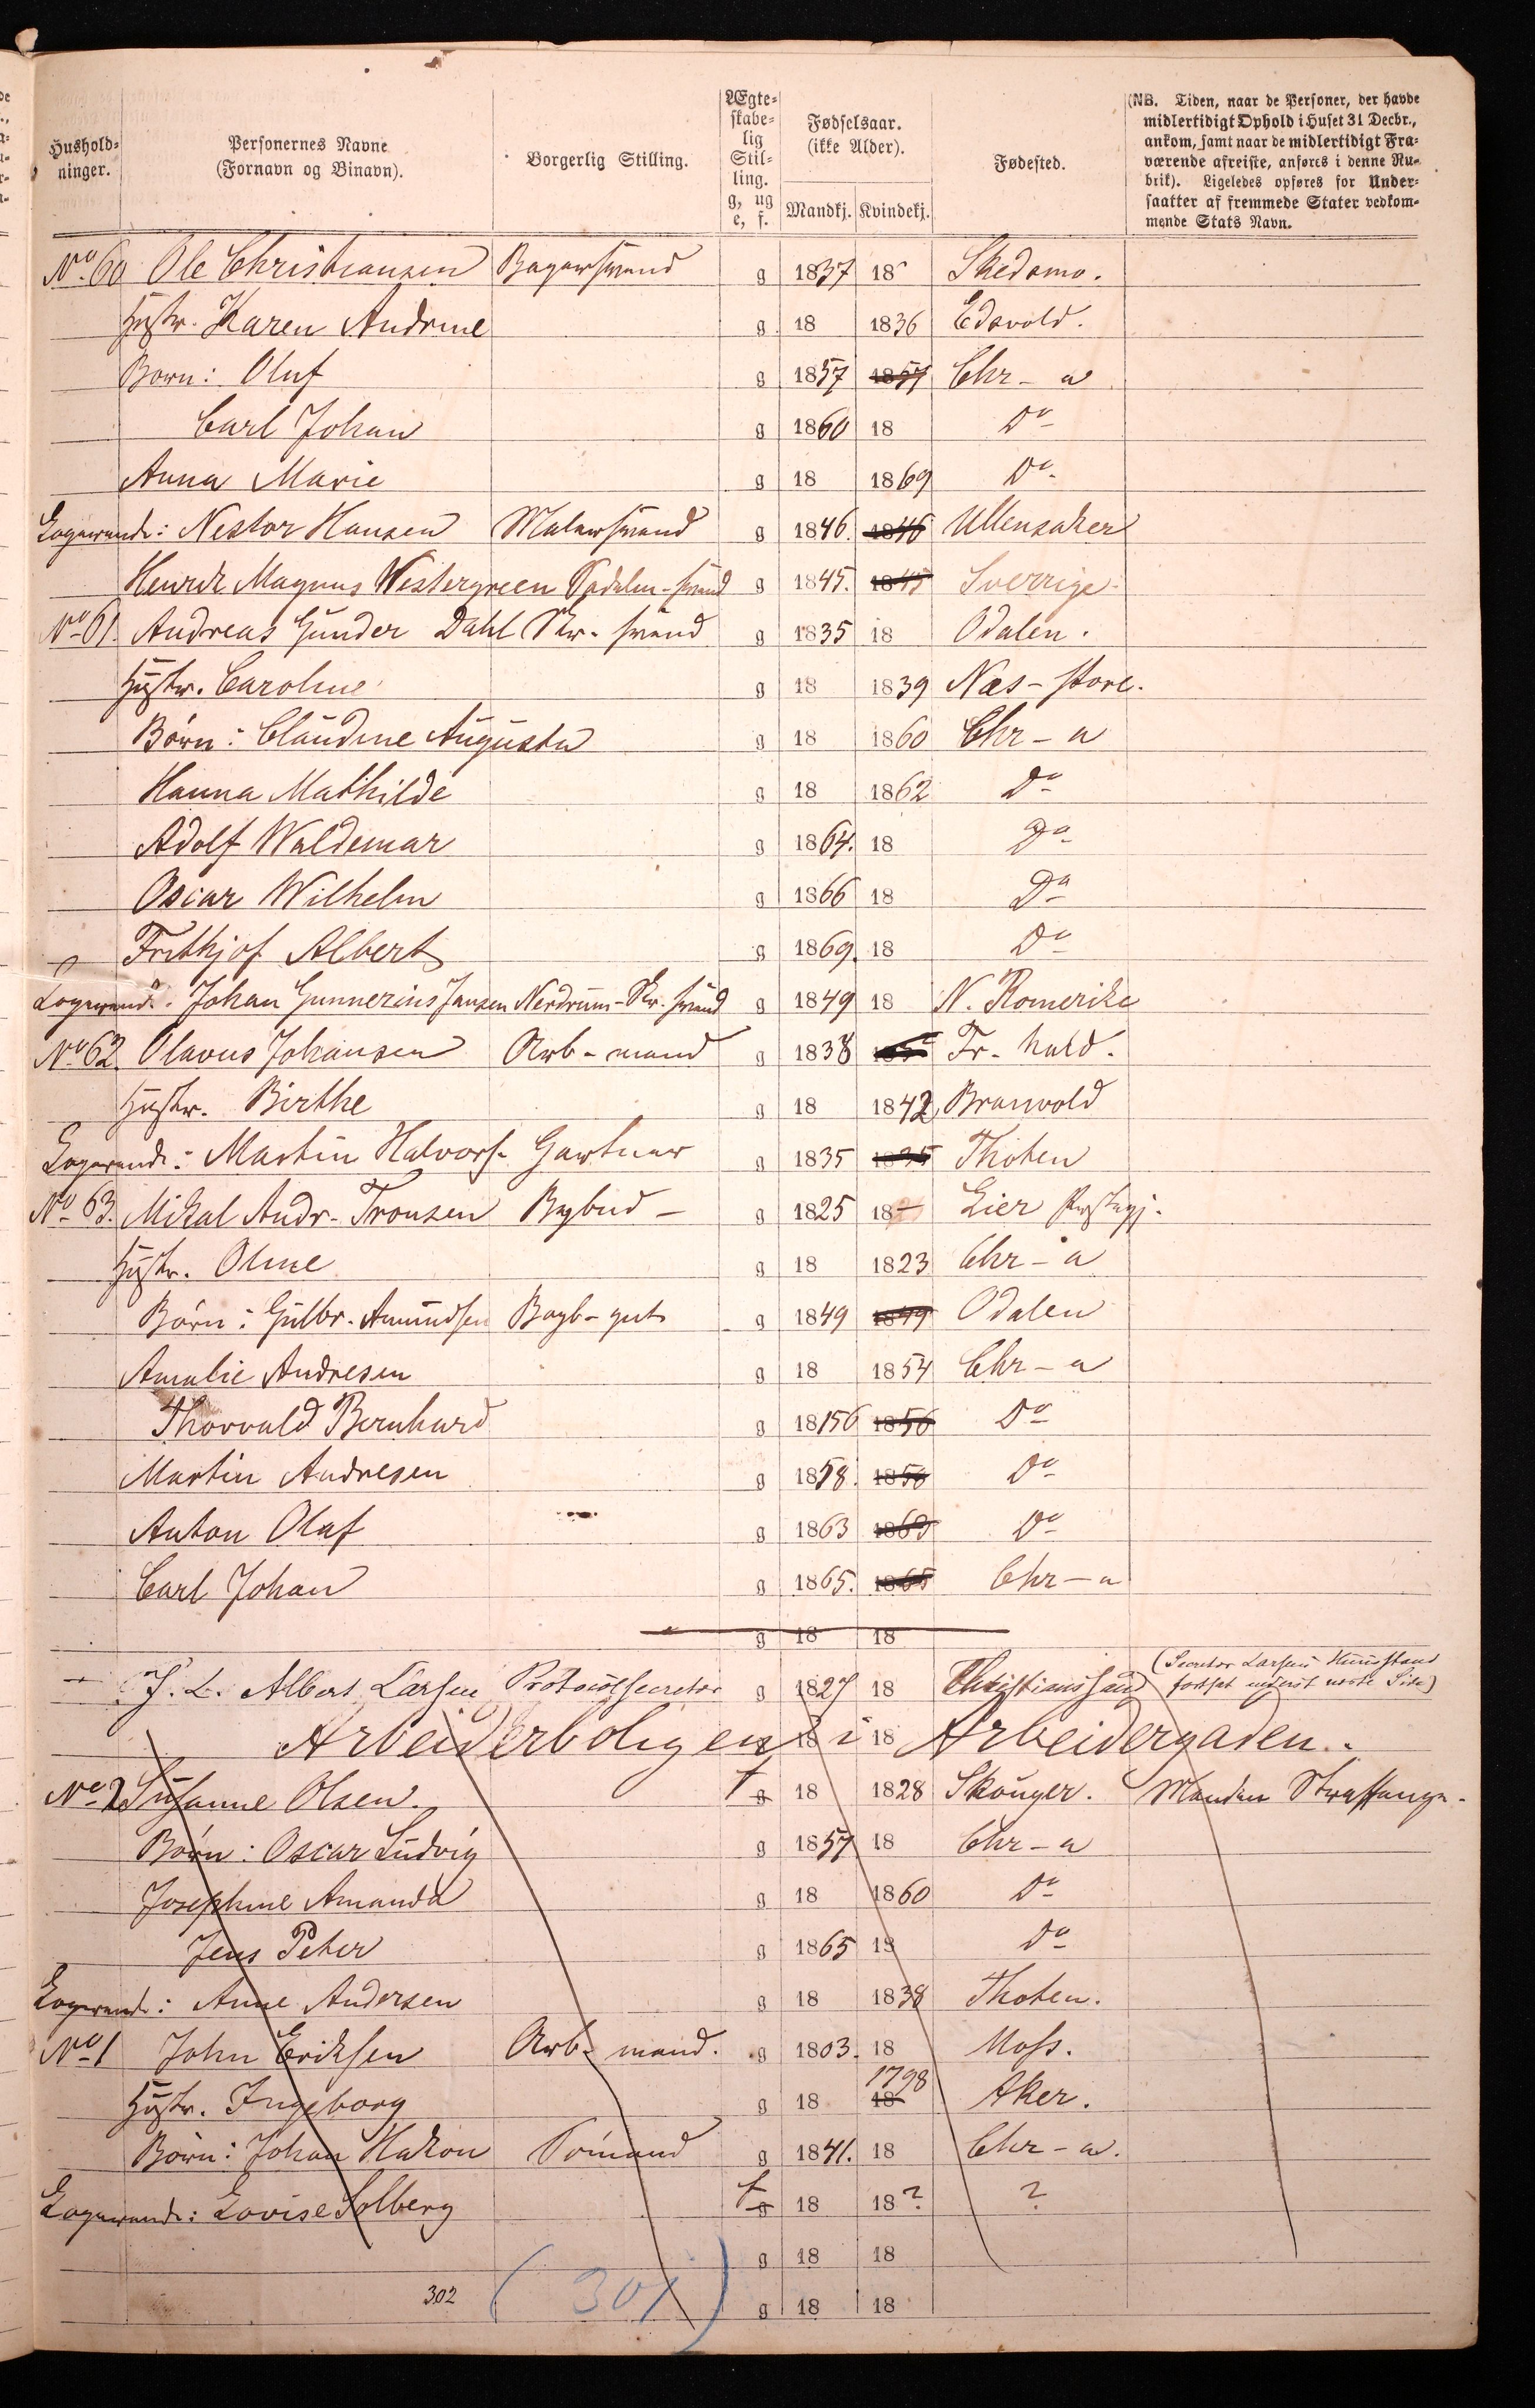 Hushold-
ninger.
Personernes Navne
(Fornavn og Binavn).
Borgerlig Stilling.
Ægte-
skabe-
lig
Stil-
ling.
g, ug
e, f.
Fødselsaar.
(ikke Alder).
Mandkj. Kvindekj.
Fødested.
(NB. Tiden, naar de Personer, der havde
midlertidigt Ophold i Huset 31 Decbr.,
ankom, samt naar de midlertidigt Fra-
værende afreiste, anføres i denne Ru-
brik). Ligeledes opføres for Under-
saatter af fremmede Stater vedkom-
mende Stats Navn.
No. 60 Ole Christiansen Bagersvend g 1837 18 Skedsmo.
Hustr. Karen Andrine g 18 1836 Edsvold.
Børn: Oluf g 1857 1857 Chr-a
Carl Johan g 1860 18 Do
Anna Marie g 18 1869 Do
Logerende: Nestor Hansen Malersvend g 1846. 1846 Ullensaker
Henrik Magnus Westergreen Sadelm-svend g 1845. 1845 Sverrige.
No. 61. Andreas Gunder Dahl Skr. svend g 1835 18 Odalen.
Hustr. Caroline g 18 1839 Næs - store.
Børn: Claudine Augusta g 18 1860 Chr-a
Hanna Mathilde g 18 1862 Do
Adolf Waldemar g 1864. 18 Do
Oscar Wilhelm g 1866 18 Do
Frithjof Albert g 1869. 18 Do
Logerende. Johan Gunnerius Jansen Nerdrum - Skr. svend g 1849 18 N. Romerike
No. 62. Olavus Johansen Arb-mand g 1838 Fr-hald.
Hustr. Birthe g 18 1842 Branvold
Logerende: Martin Halvors. Gartner g 1835 1835 Thoten
No. 63. Mikal Andr. Tronsen Bybud - g 1825 18 Lier Prstegj.
Hustr. Oline g 18 1823 Chr-a
Børn: Gulbr. Amundsen Bogb-gut g 1849 1849 Odalen
Amalie Andresen g 18 1854 Chr-a
Thorvald Bernhard g 18156 1856 Do
Martin Andresen g 1858. 1858 Do
Anton Olaf g 1863 1863 Do
Carl Johan g 1865. 1865 Chr-a
g 18 18
J. L. Albert Larsen Protocolsecretær g 1827 18 Christianssand (Secretær Larsens Huusstand
fortsat nederst næste Side)
Arbeiderboligen i Arbeidergaden.
No. 2 Susanne Olsen. f g 18 1828 Skouger. Manden Straffange.
Børn: Oscar Ludvig g 1857 18 Chr-a
Josephine Amanda g 18 1860 Do
Jens Peter g 1865 18 Do
Logerende: Anne Andersen g 18 1838 Thoten.
No. 1 John Eriksen Arb-mand. g 1803. 18 Moss.
Hustr. Ingeborg g 18 18 1798 Aker.
Børn: Johan Hakon Sømand g 1841. 18 Chr-a.
Logerende: Lovise Solberg f g 18 18? ?
g 18 18
302 (301) g 18 18